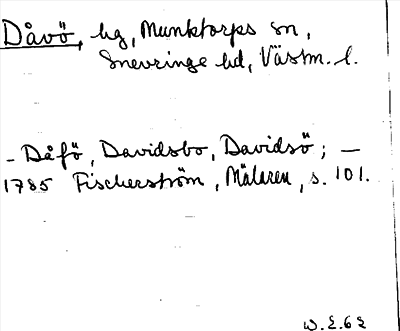 Dåvö, hg, Munktorps sn,
Snevringe hd, Västm. l.
- Dåfö, Davidsbo, Davidsö; —
1785 Fischerström, Mälaren, s. 101.
W.E.62